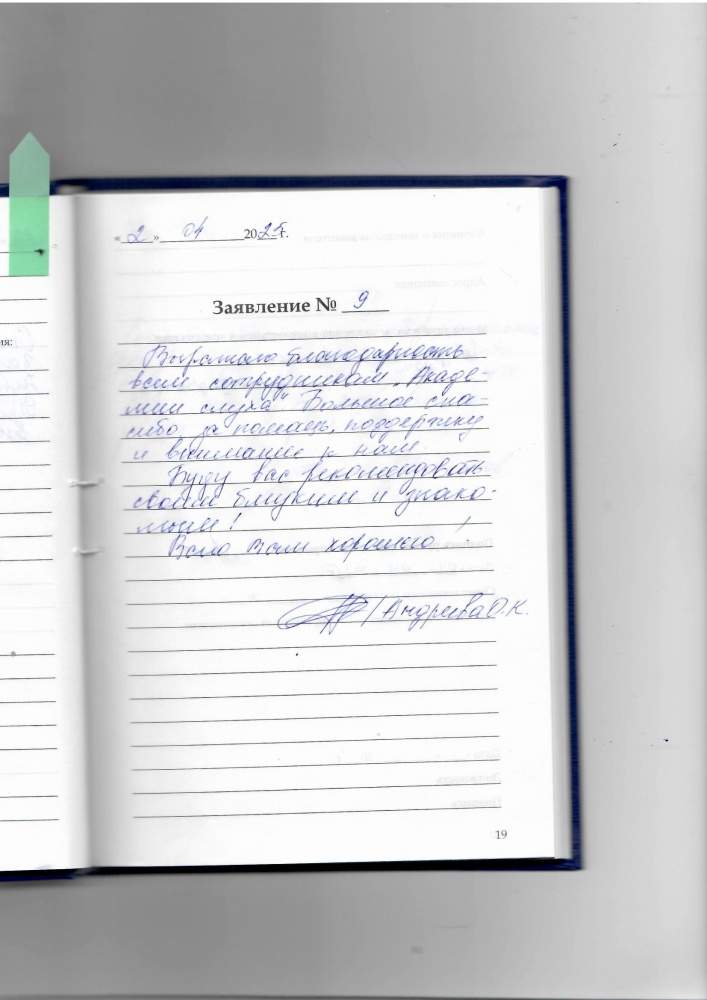 « 2 » 04 2025 г.
Заявление № 9
Выражаю благодарность
всем сотрудникам „Акаде-
мии слуха" Большое спа-
сибо за помощь, поддержку
и внимание к нам
Буду вас рекомендовать
своим близким и знако-
мым!
Всего Вам хорошего!
/Андреева О.К.
ия:
19